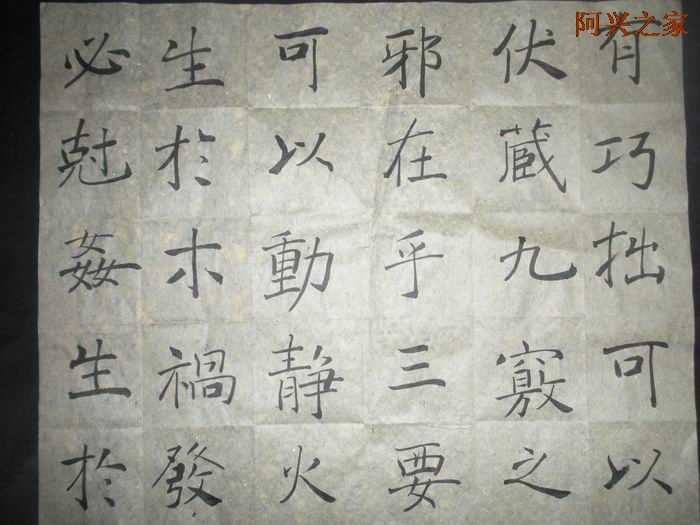 阿兴之家
有巧拙可以
伏藏九竅之
邪在乎三要
可以動静火
生於木禍發
必尅姦生於